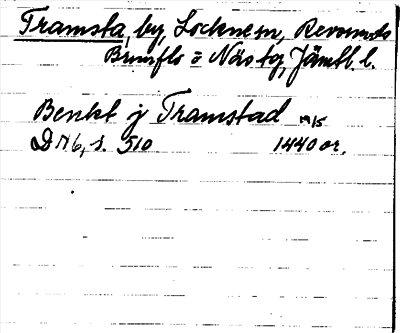 Tramsta, by, Locknesn, Revsunds
Brunflo o Näs tg, Jämtl. l.
Benkt j Tramstad 19/5
DN 6, s. 510 1440 or.